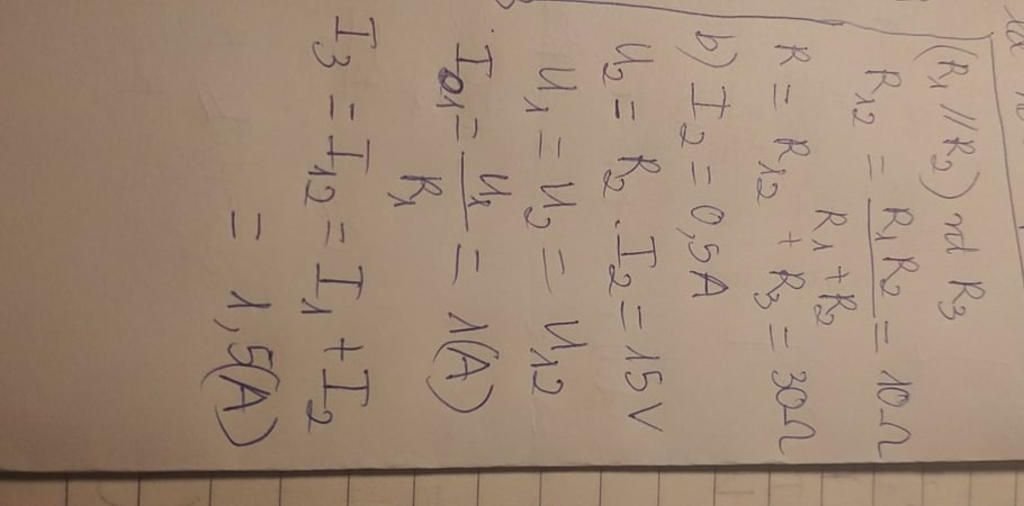 (R1 // R2) nt R3
R12 = R1R2 / R1 + R2 = 10Ω
R = R12 + R3 = 30Ω
b) I2 = 0,5A
U2 = R2 . I2 = 15V
U1 = U2 = U12
I1 = U1 / R1 = 1(A)
I3 = I12 = I1 + I2
= 1,5(A)